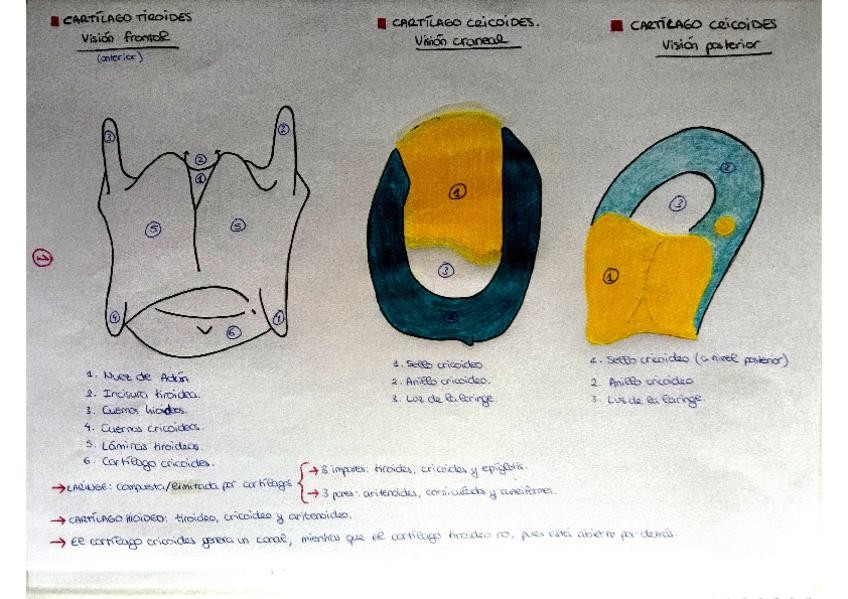 CARTÍLAGO TIROIDES
Visión frontal
(anterior)
CARTÍLAGO CRICOIDES.
Visión craneal
CARTÍLAGO CRICOIDES
Visión posterior
3
2
3
1
5
5
4
4
6
1
1
3
2
2
3
1
1. Nuez de Adán
2. Incisura tiroidea.
3. Cuernos hioideos.
4. Cuernos cricoideos.
5. Láminas tiroideas.
6. Cartílago cricoides.
1. Sello cricoideo.
2. Anillo cricoideo.
3. Luz de la laringe.
1. Sello cricoideo (a nivel posterior)
2. Anillo cricoideo
3. Luz de la laringe.
→ LARINGE: compuesta/limitada por cartílagos
→ 3 impares: tiroides, cricoides y epiglotis.
→ 3 pares: aritenoides, corniculados y cuneiformes.
→ CARTÍLAGO HIOIDEO: tiroideo, cricoideo y aritenoideo.
→ El cartílago cricoides genera un canal, mientras que el cartílago tiroideo no, pues está abierto por detrás.